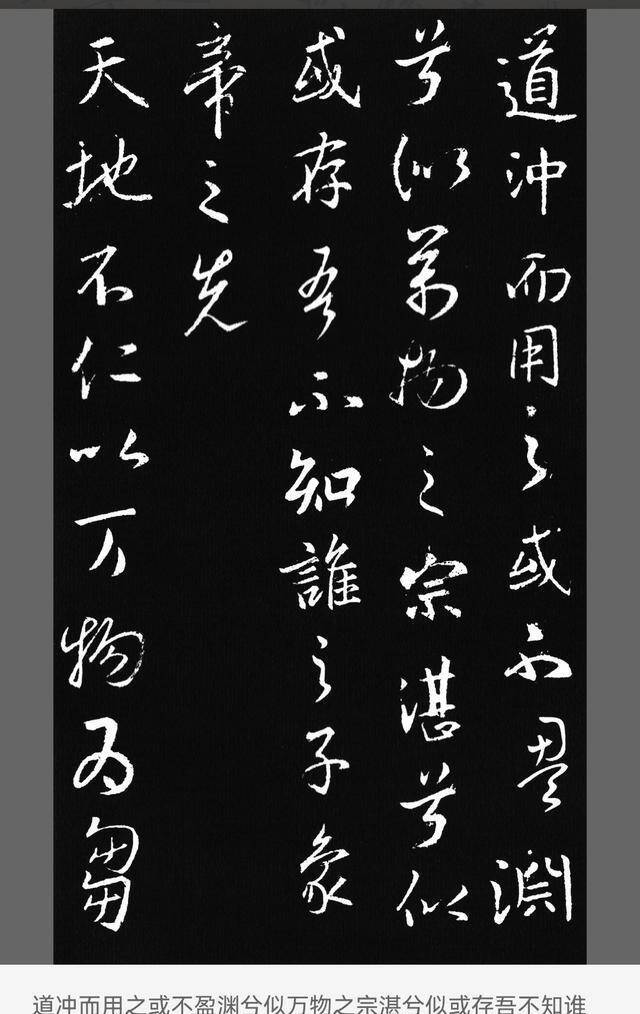 道沖而用之或不盈淵
兮似萬物之宗湛兮似
或存吾不知誰之子象
帝之先
天地不仁以万物为芻
道冲而用之或不盈渊兮似万物之宗湛兮似或存吾不知谁